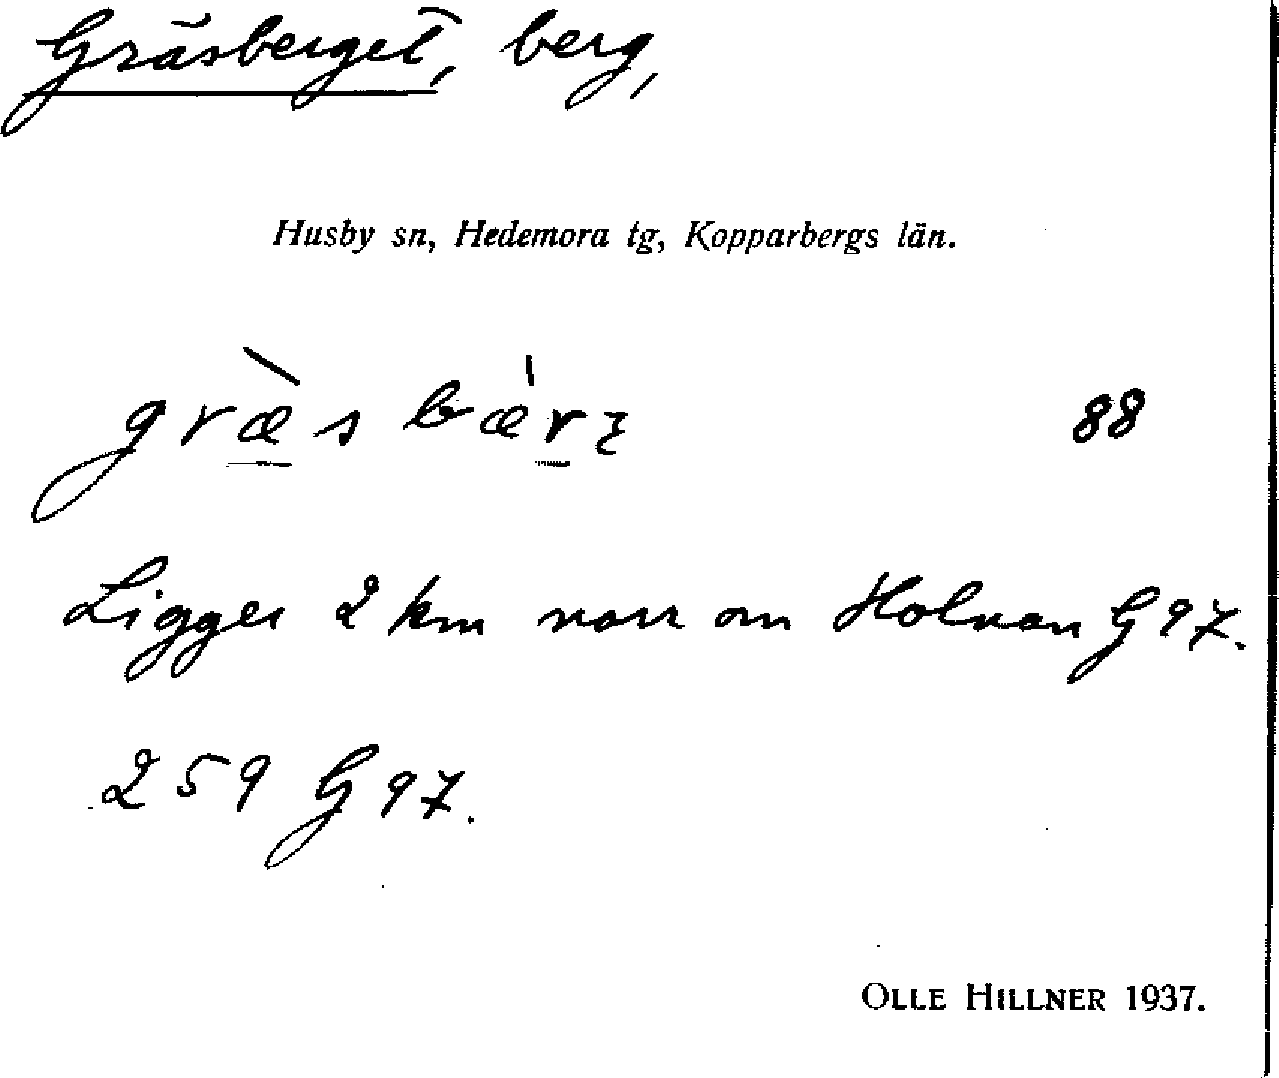 Gräsberget, berg,
Husby sn, Hedemora tg, Kopparbergs län.
græ̀sbæ̍rʒ 88
Ligger 2 km norr om Holvan G 97.
259 G 97.
OLLE HILLNER 1937.